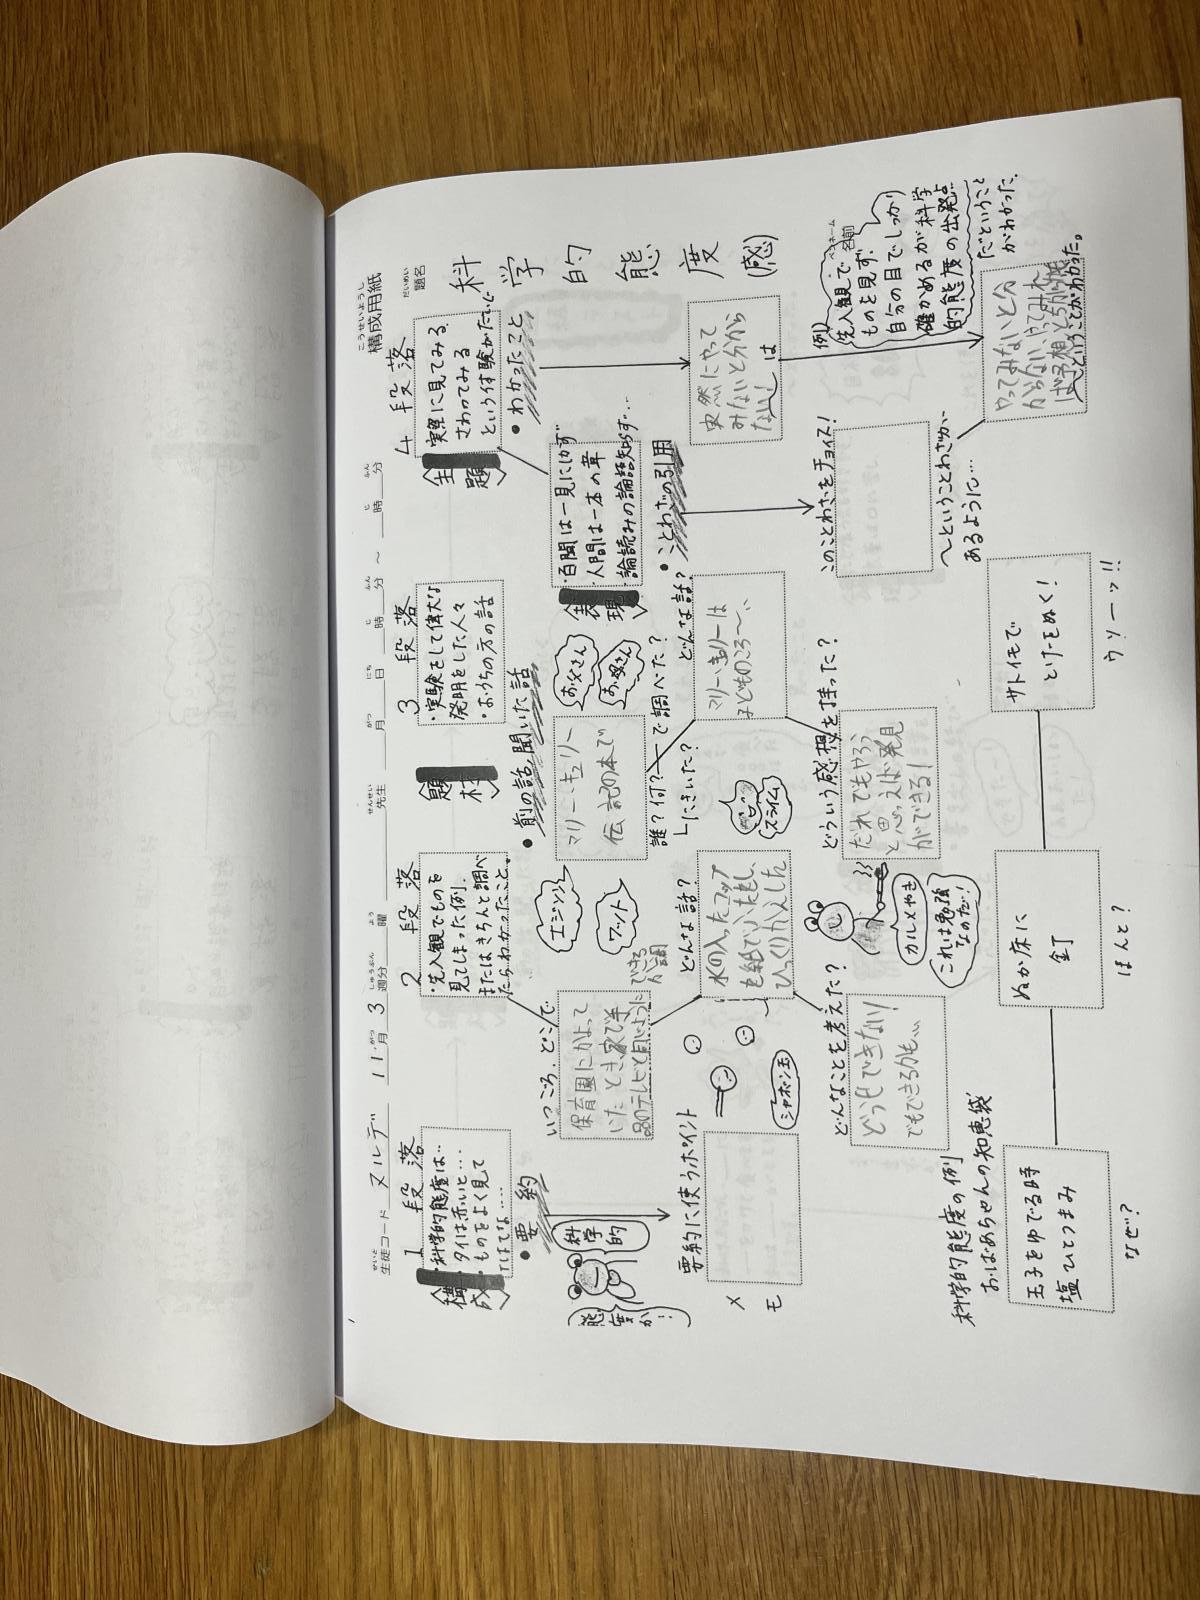 構成用紙
こうせいようし
生徒コード
せいと
ヌルデ 11月 3週分
がつ しゅうぶん
曜
よう
先生
せんせい
月 日 時 分 ～ 時 分
がつ にち じ ふん じ ふん
題名
だいめい
科学的態度(感)
名前
ペンネーム
1段落
構成
・科学的態度は…
タイは赤いと…
ものをよく見て
・要約
科学的
態度か！
要約に使うポイント
メモ
2段落
・先入観でものを
見てしまった例。
またはきちんと調べ
たらわかったこと。
いつごろ、どこで
保育園にかよって
いたとき、家で
どんな話？
水の入ったコップ
を紙で
ひっくりかえした
シャボン玉
どんなことを考えた？
どうせできない！
でもできるかも…
3段落
題材
・実験をして偉大な
発明をした人々
・おうちの方の話
・前の話、聞いた話
エジソン
ワット
マリー・キュリー
伝記の本で
お父さん
お母さん
誰？何？ーで調べた？
にきいた？
どんな話？
マリー・キュリーは
子どものころ～
スライム
どういう感想を持った？
だれでもやろう
と思えば発見
ができる！
カルメやき
これは勉強
なのだ！
4段落
主題
・実際に見てみる
さわってみる
という体験がたいせつ
・わかったこと
実際にやって
みないと分から
ない！は
表現
・百聞は一見にしかず
人間は一本の葦
論語読みの論語知らず…
・ことわざの引用
このことわざをチョイス！
～ということわざが
あるように…
例)
先入観で
ものを見ず、
自分の目でしっかり
確かめるが科学
的態度の出発点
だということ
がわかった。
やってみないと分
からない、やってみれ
ば予想とちがう
ということがわかった。
科学的態度の例
おばあちゃんの知恵袋
玉子をゆでる時
塩ひとつまみ
なぜ？
ぬか床に
釘
ほんと？
サトイモで
とげをぬく！
ウソーッ!!